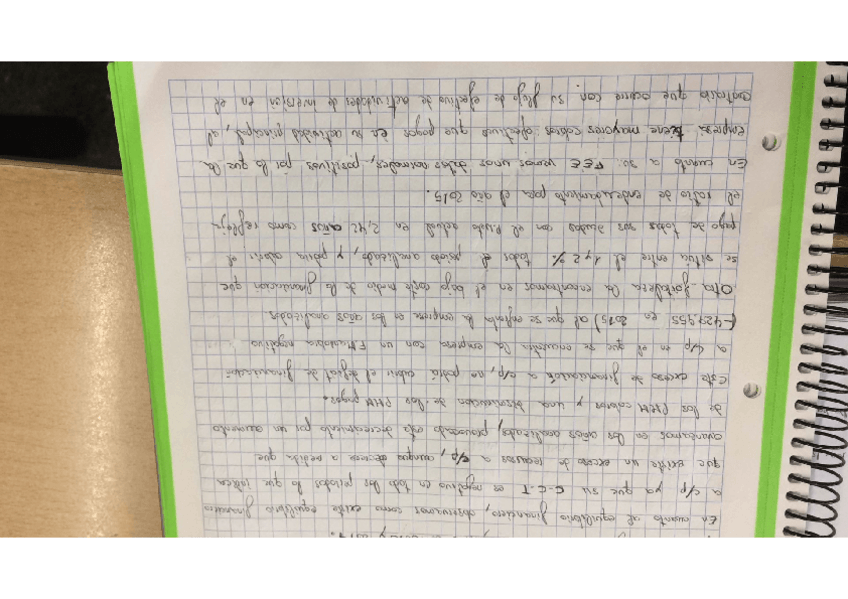 y 2017.
En cuanto al equilibrio financiero, observamos como existe equilibrio financiero
a c/p ya que su C.C.T es negativo en todos los periodos lo que indica
que existe un exceso de recursos a c/p, aunque decrece a medida que
avanzamos en los años analizados, provocado este decrecimiento por un aumento
de los PMM cobros y una disminución de los PMM pagos.
Este exceso de financiación a c/p, no podrá cubrir el déficit de financiación
a l/p en el que se encuentra la empresa con un FM negativo
(-427.955 en 2015) al que se enfrenta la empresa en los años analizados.
Otra fortaleza la encontramos en el bajo coste medio de la financiación que
se sitúa entre el 1 y 2 % todos el periodo analizado, y podría cubrir el
pago de todas sus deudas con el actual en 2,42 años como refleja
el ratio de endeudamiento para el año 2015.
En cuanto a su FEE vemos unos datos normales, positivos por lo que la
empresa tiene mayores cobros efectivos que pagos en su actividad principal, al
contrario que ocurre con su flujo de efectivo de actividades de inversión en el